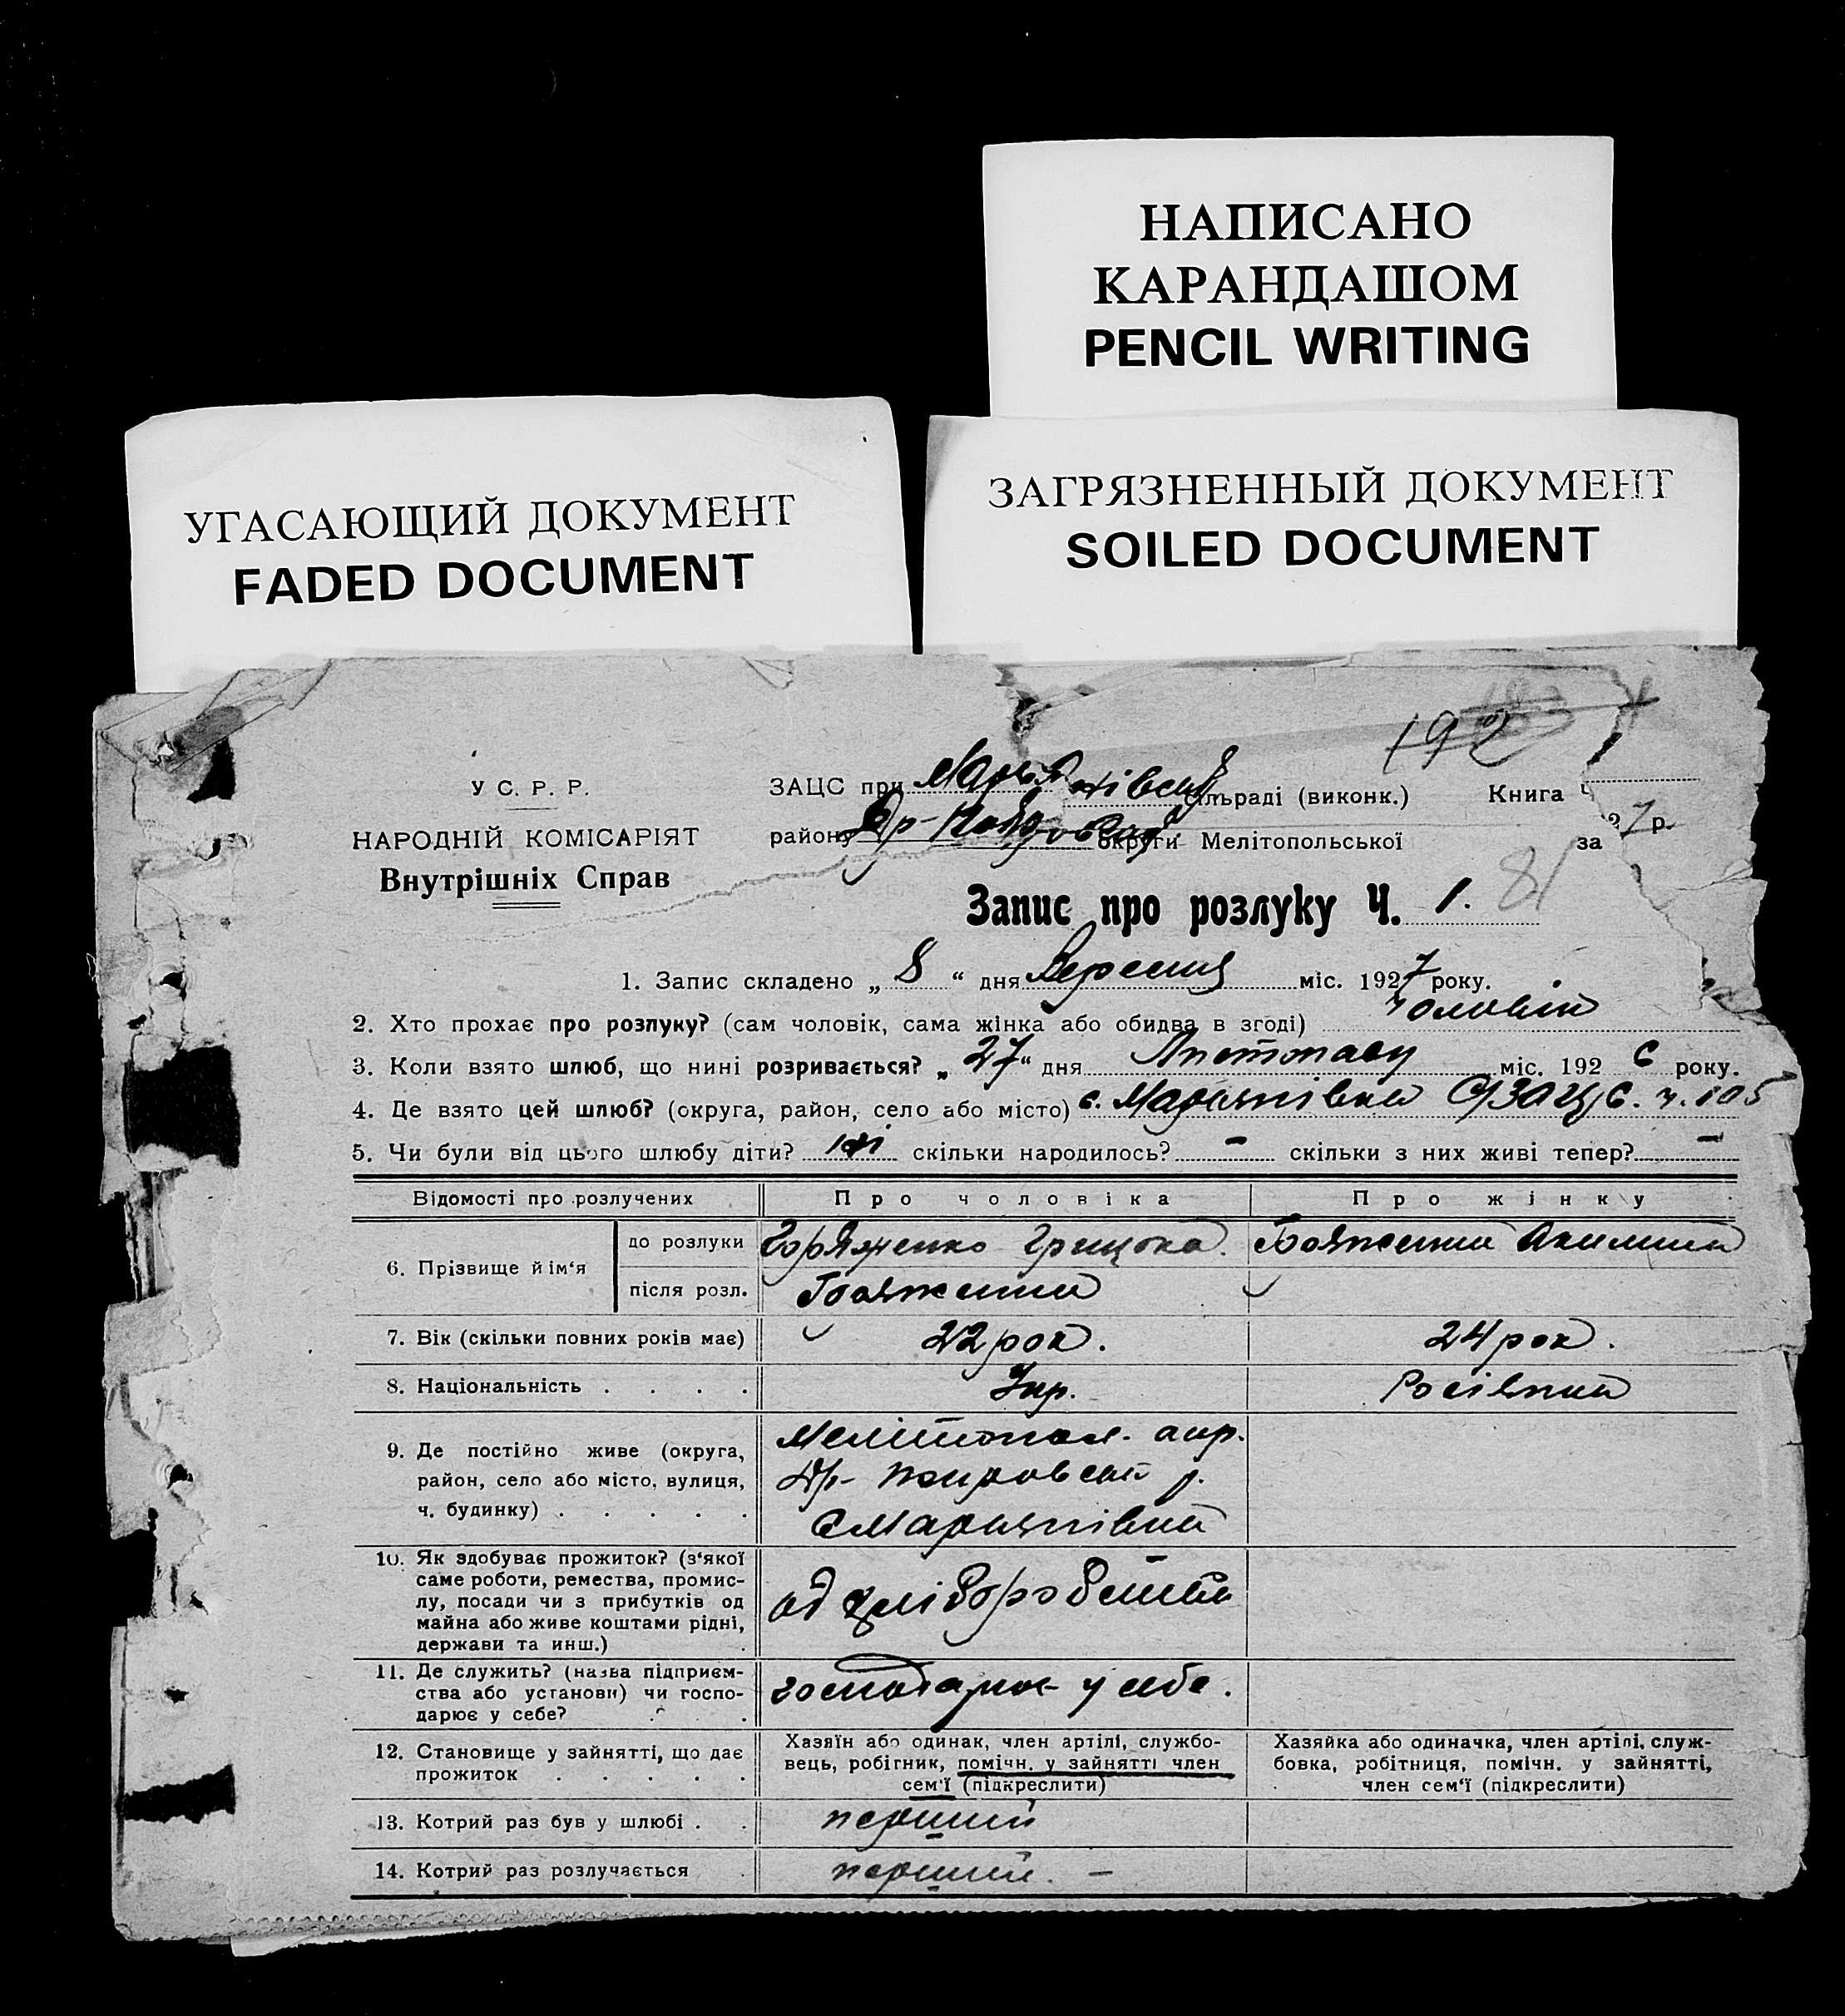 НАПИСАНО
КАРАНДАШОМ
PENCIL WRITING
УГАСАЮЩИЙ ДОКУМЕНТ
FADED DOCUMENT
ЗАГРЯЗНЕННЫЙ ДОКУМЕНТ
SOILED DOCUMENT
192
У С. Р. Р.
НАРОДНІЙ КОМІСАРІЯТ
Внутрішніх Справ
ЗАЦС при сільраді (виконк.) Книга Ч
району округи Мелітопольської за 27 р.
Запис про розлуку Ч. 1. 81
1. Запис складено „ 8 “ дня Вересня міс. 1927 року.
2. Хто прохає про розлуку? (сам чоловік, сама жінка або обидва в згоді) чоловік
3. Коли взято шлюб, що нині розривається? „ 27 “ дня Листопаду міс. 192 6 року.
4. Де взято цей шлюб? (округа, район, село або місто) с. Мар'янівка ч. 105
5. Чи були від цього шлюбу діти? ні скільки народилось? – скільки з них живі тепер? –
Відомості про розлучених
Про чоловіка
Про жінку
6. Прізвище й ім‘я
до розлуки
після розл.
7. Вік (скільки повних років має) 22 рок. 24 рок.
8. Національність . . . . Укр. Росіянка
9. Де постійно живе (округа,
район, село або місто, вулиця,
ч. будинку) . . . . .
Мелітопол. окр.
с Мар'янівка
10. Як здобуває прожиток? (з‘якої
саме роботи, ремества, промис-
лу, посади чи з прибутків од
майна або живе коштами рідні,
держави та инш.) .
од хліборобства
11. Де служить? (назва підприєм-
ства або установи) чи госпо-
дарює у себе? . .
господарює у себе.
12. Становище у зайнятті, що дає
прожиток . . . . .
Хазяїн або одинак, член артілі, службо-
вець, робігник, помічн. у зайнятті член
сем‘ї (підкреслити)
Хазяйка або одиначка, член артілі, служ-
бовка, робітниця, помічн. у зайнятті,
член сем‘ї (підкреслити)
13. Котрий раз був у шлюбі . . перший
14. Котрий раз розлучається . перший. –